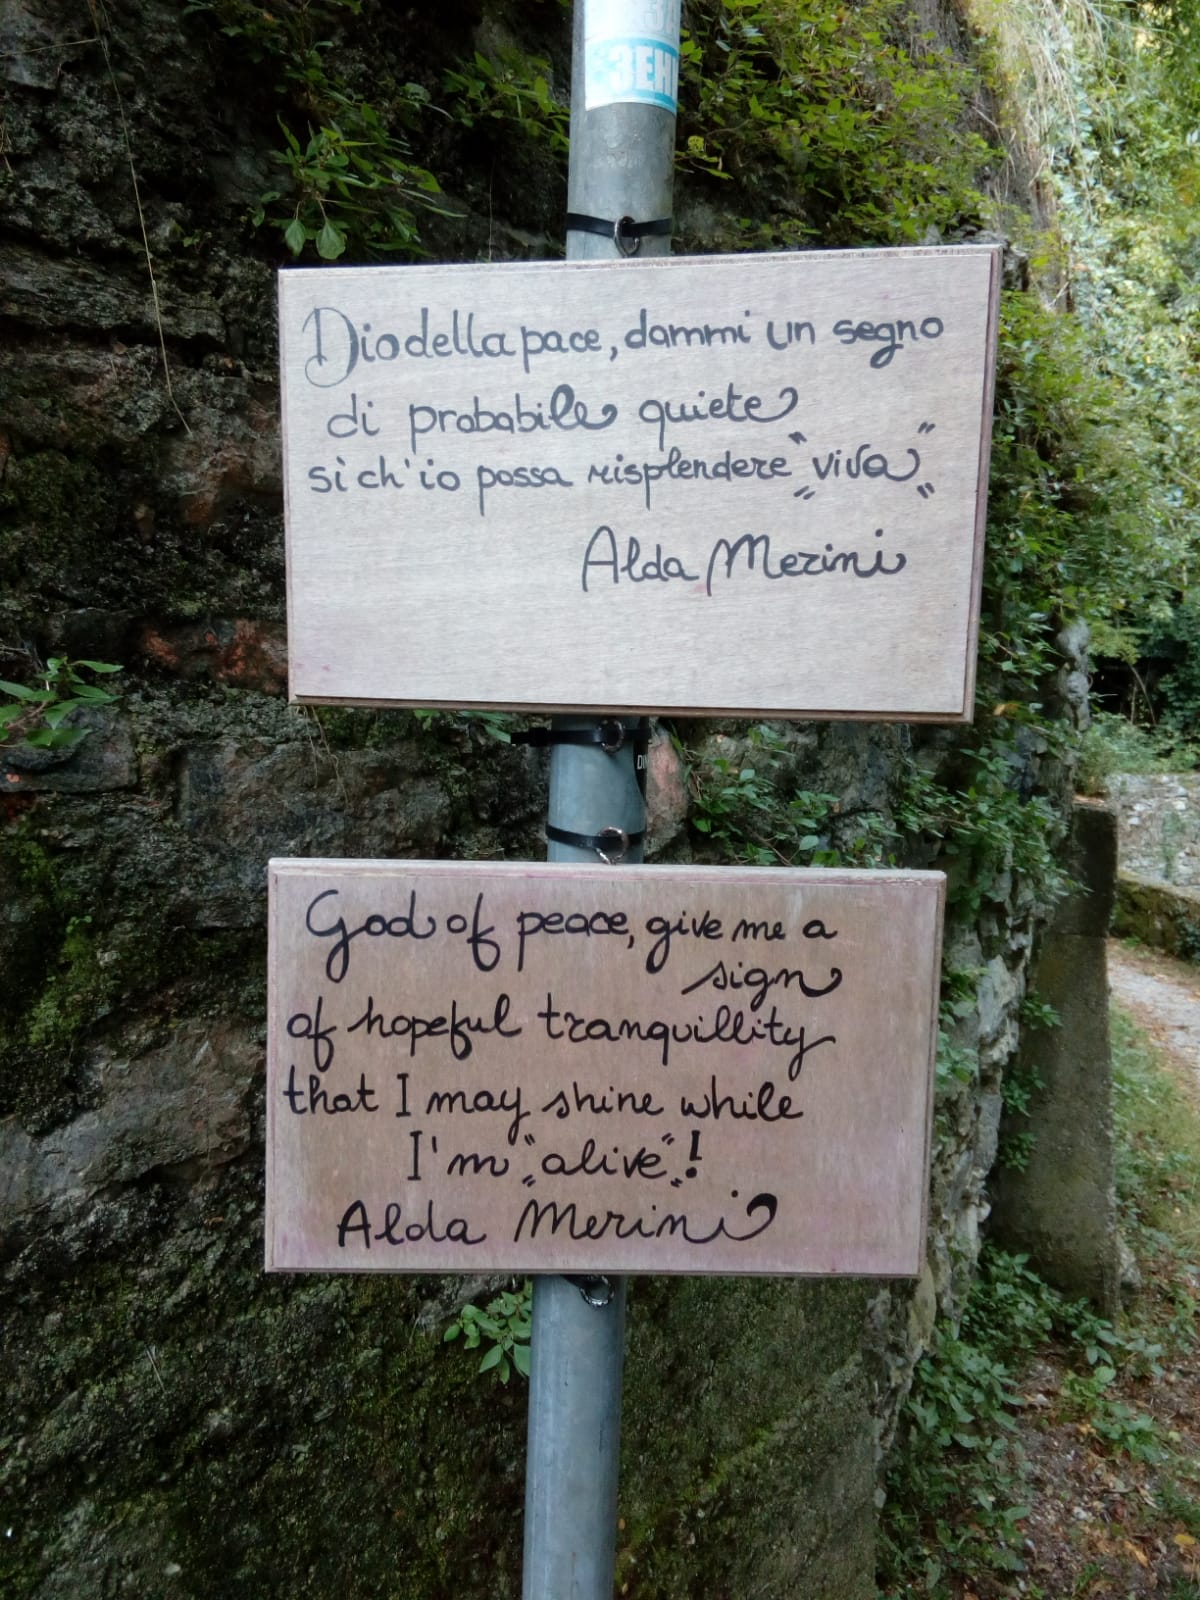 ЗЕНИ
Dio della pace, dammi un segno
di probabile quiete
sì ch'io possa risplendere "viva"
Alda Merini
God of peace, give me a
sign
of hopeful tranquillity
that I may shine while
I'm "alive"!
Alda Merini